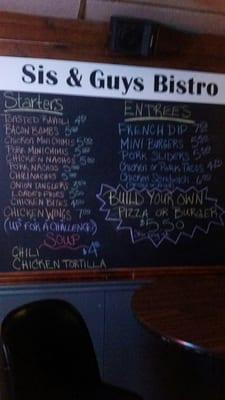 Sis & Guys Bistro
Starters
Toasted Ravioli 4.00
Bacon Bombs 5.00
Chicken Mini Chimis 5.00
Pork Mini Chimis 5.00
Chicken Nachos 5.00
Pork Nachos 5.00
Chili Nachos 5.00
Onion Tanglers
Loaded Fries 5.00
Chicken Bites 4.00
Chicken Wings 7.00
(Up for a Challenge)
Soup
Chili $4.00
Chicken Tortilla
Entrees
French Dip 7.00
Mini Burgers 5.00
Pork Sliders 5.00
Chicken or Pork Tacos
Chicken Sandwich 6.00
Build Your Own
Pizza or Burger
$5.50